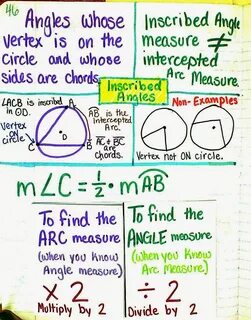 46
Angles whose
vertex is on the
circle and whose
sides are chords.
Inscribed Angle
measure ≠
intercepted
Arc Measure.
Inscribed
Angles
∠ACB is inscribed
in ⊙D.
Vertex
on
circle
A
B
C
D
AB is the
Intercepted
Arc.
AC + BC
are
chords.
Non-Examples
Vertex not ON circle.
m∠C = 1/2 · mAB
To find the
ARC measure
(when you know
Angle measure)
× 2
Multiply by 2
To find the
ANGLE measure
(when you know
Arc Measure)
÷ 2
Divide by 2